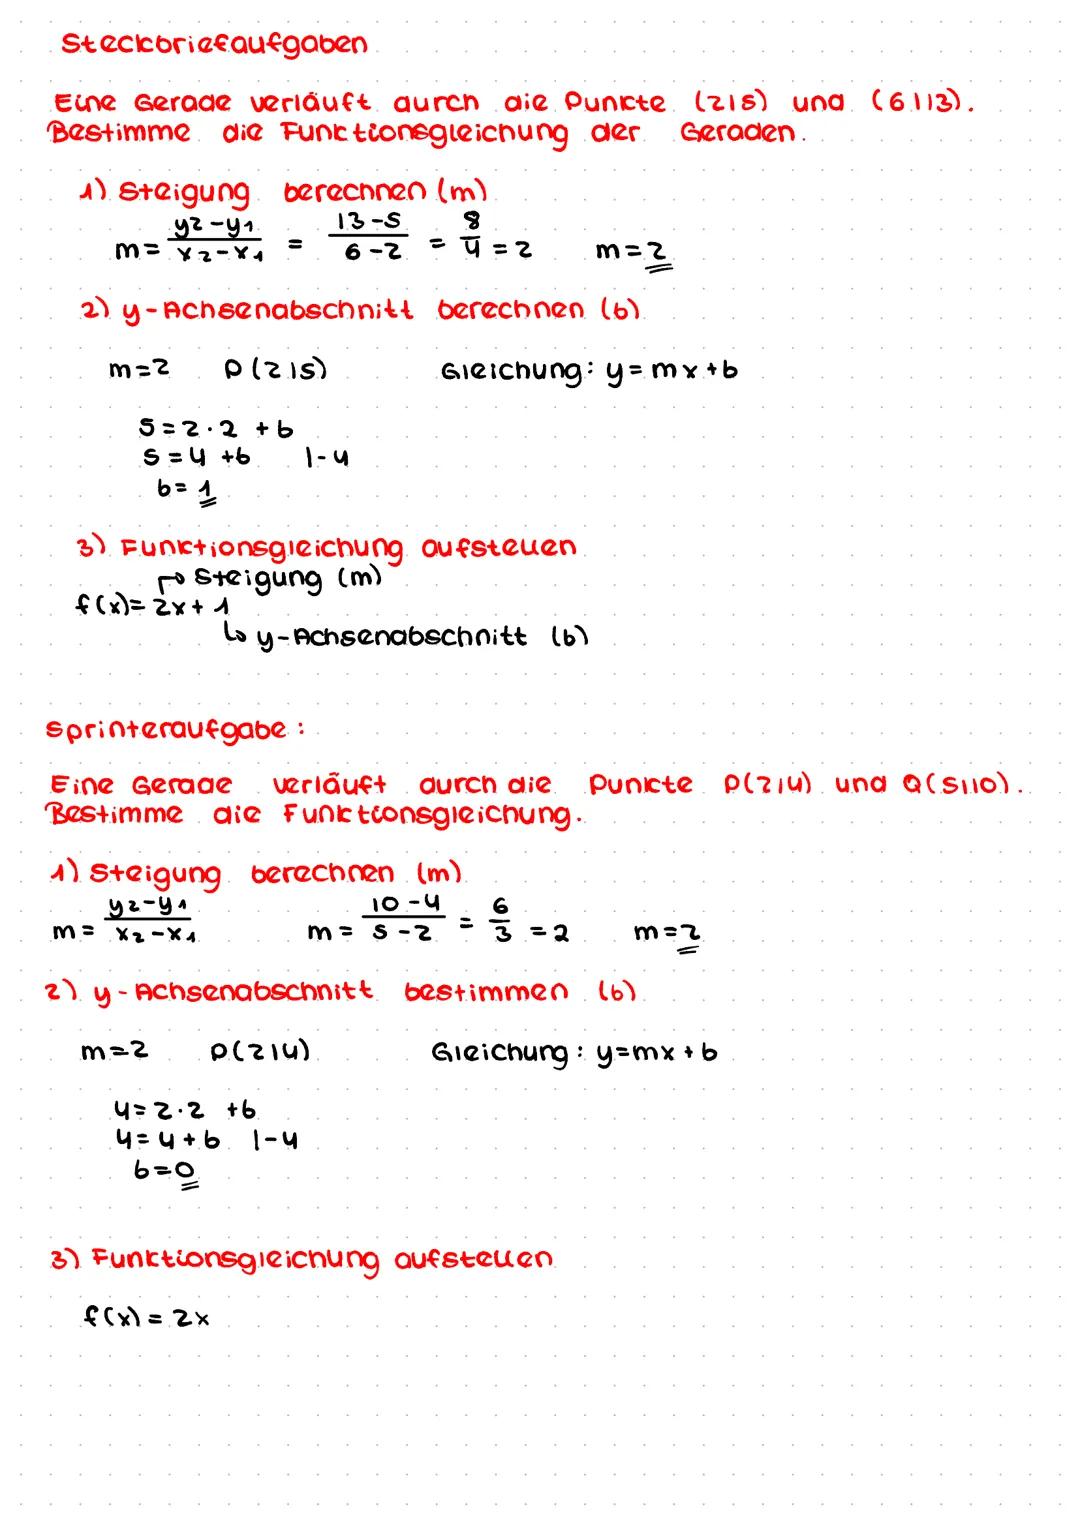 Steckbriefaufgaben
Eine Gerade verläuft durch die Punkte (2|5) und (6|13).
Bestimme die Funktionsgleichung der Geraden.
1) Steigung berechnen (m)
m = (y2-y1)/(x2-x1) = (13-5)/(6-2) = 8/4 = 2 m=2
2) y-Achsenabschnitt berechnen (b)
m=2 P(2|5) Gleichung: y=mx+b
5=2·2 +b
5=4+b |-4
b=1
3) Funktionsgleichung aufstellen
↱ Steigung (m)
f(x)= 2x+1
↳ y-Achsenabschnitt (b)
Sprinteraufgabe:
Eine Gerade verläuft durch die Punkte P(2|4) und Q(5|10).
Bestimme die Funktionsgleichung.
1) Steigung berechnen (m)
m = (y2-y1)/(x2-x1) m = (10-4)/(5-2) = 6/3 = 2 m=2
2) y-Achsenabschnitt bestimmen (b)
m=2 P(2|4) Gleichung: y=mx+b
4=2·2 +b
4=4+b |-4
b=0
3) Funktionsgleichung aufstellen
f(x)=2x